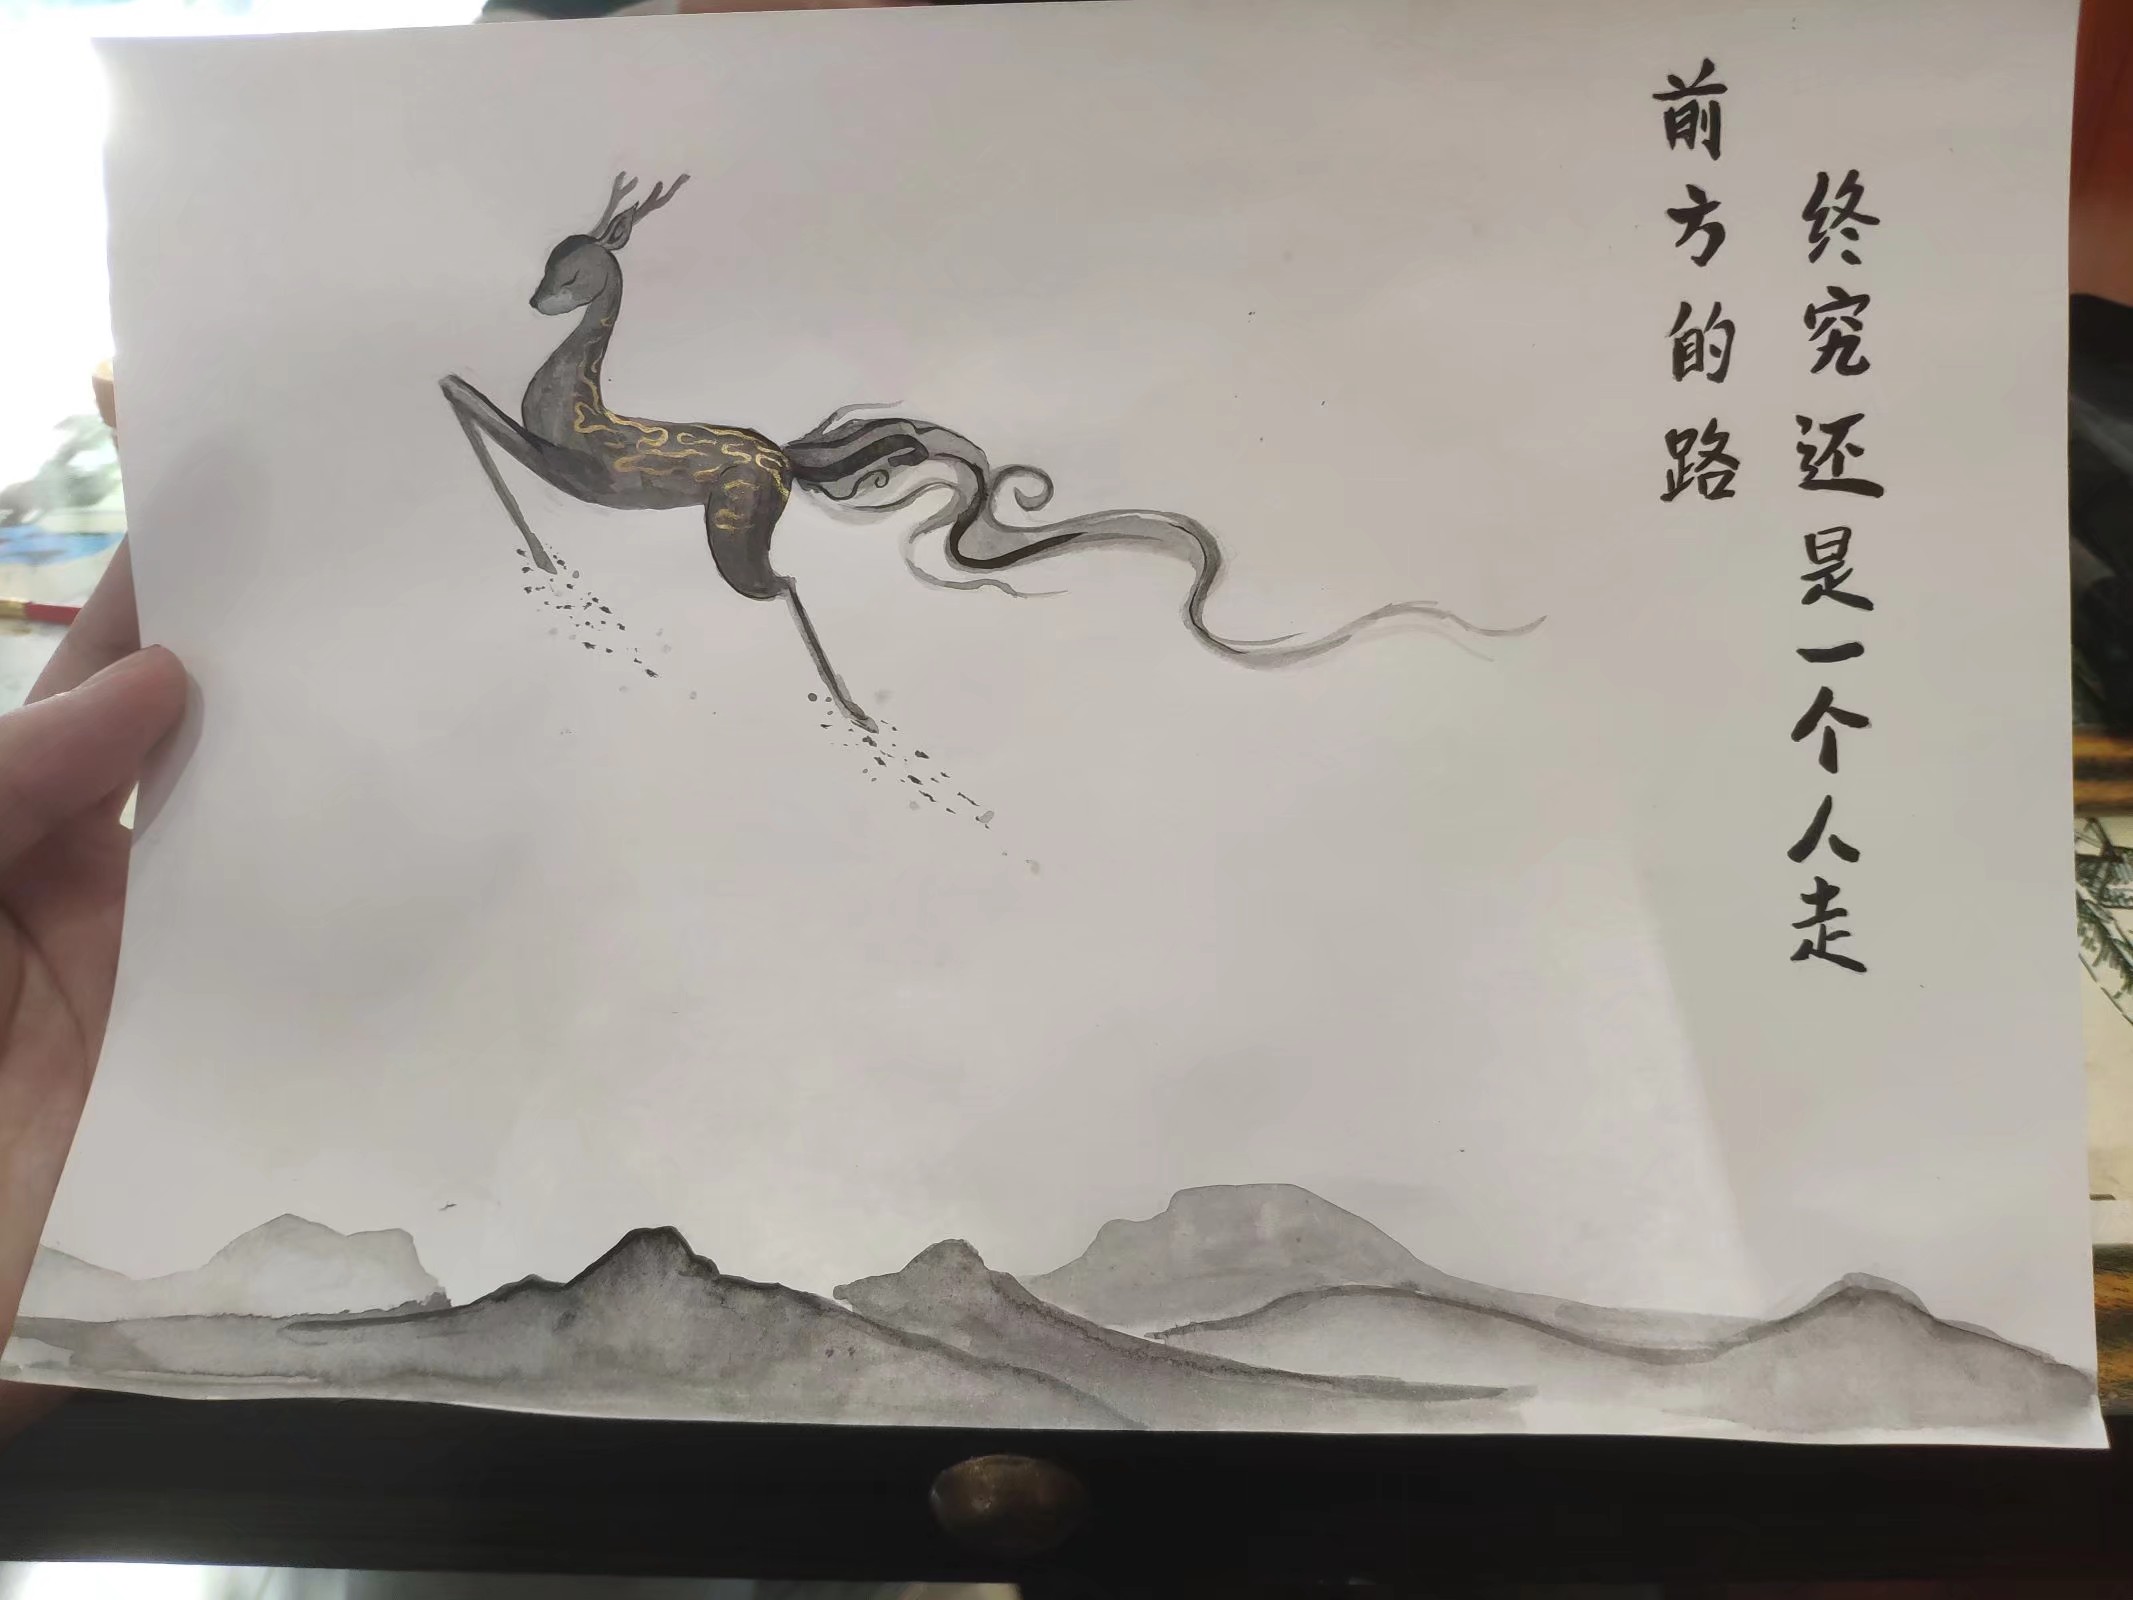 前方的路
终究还是一个人走